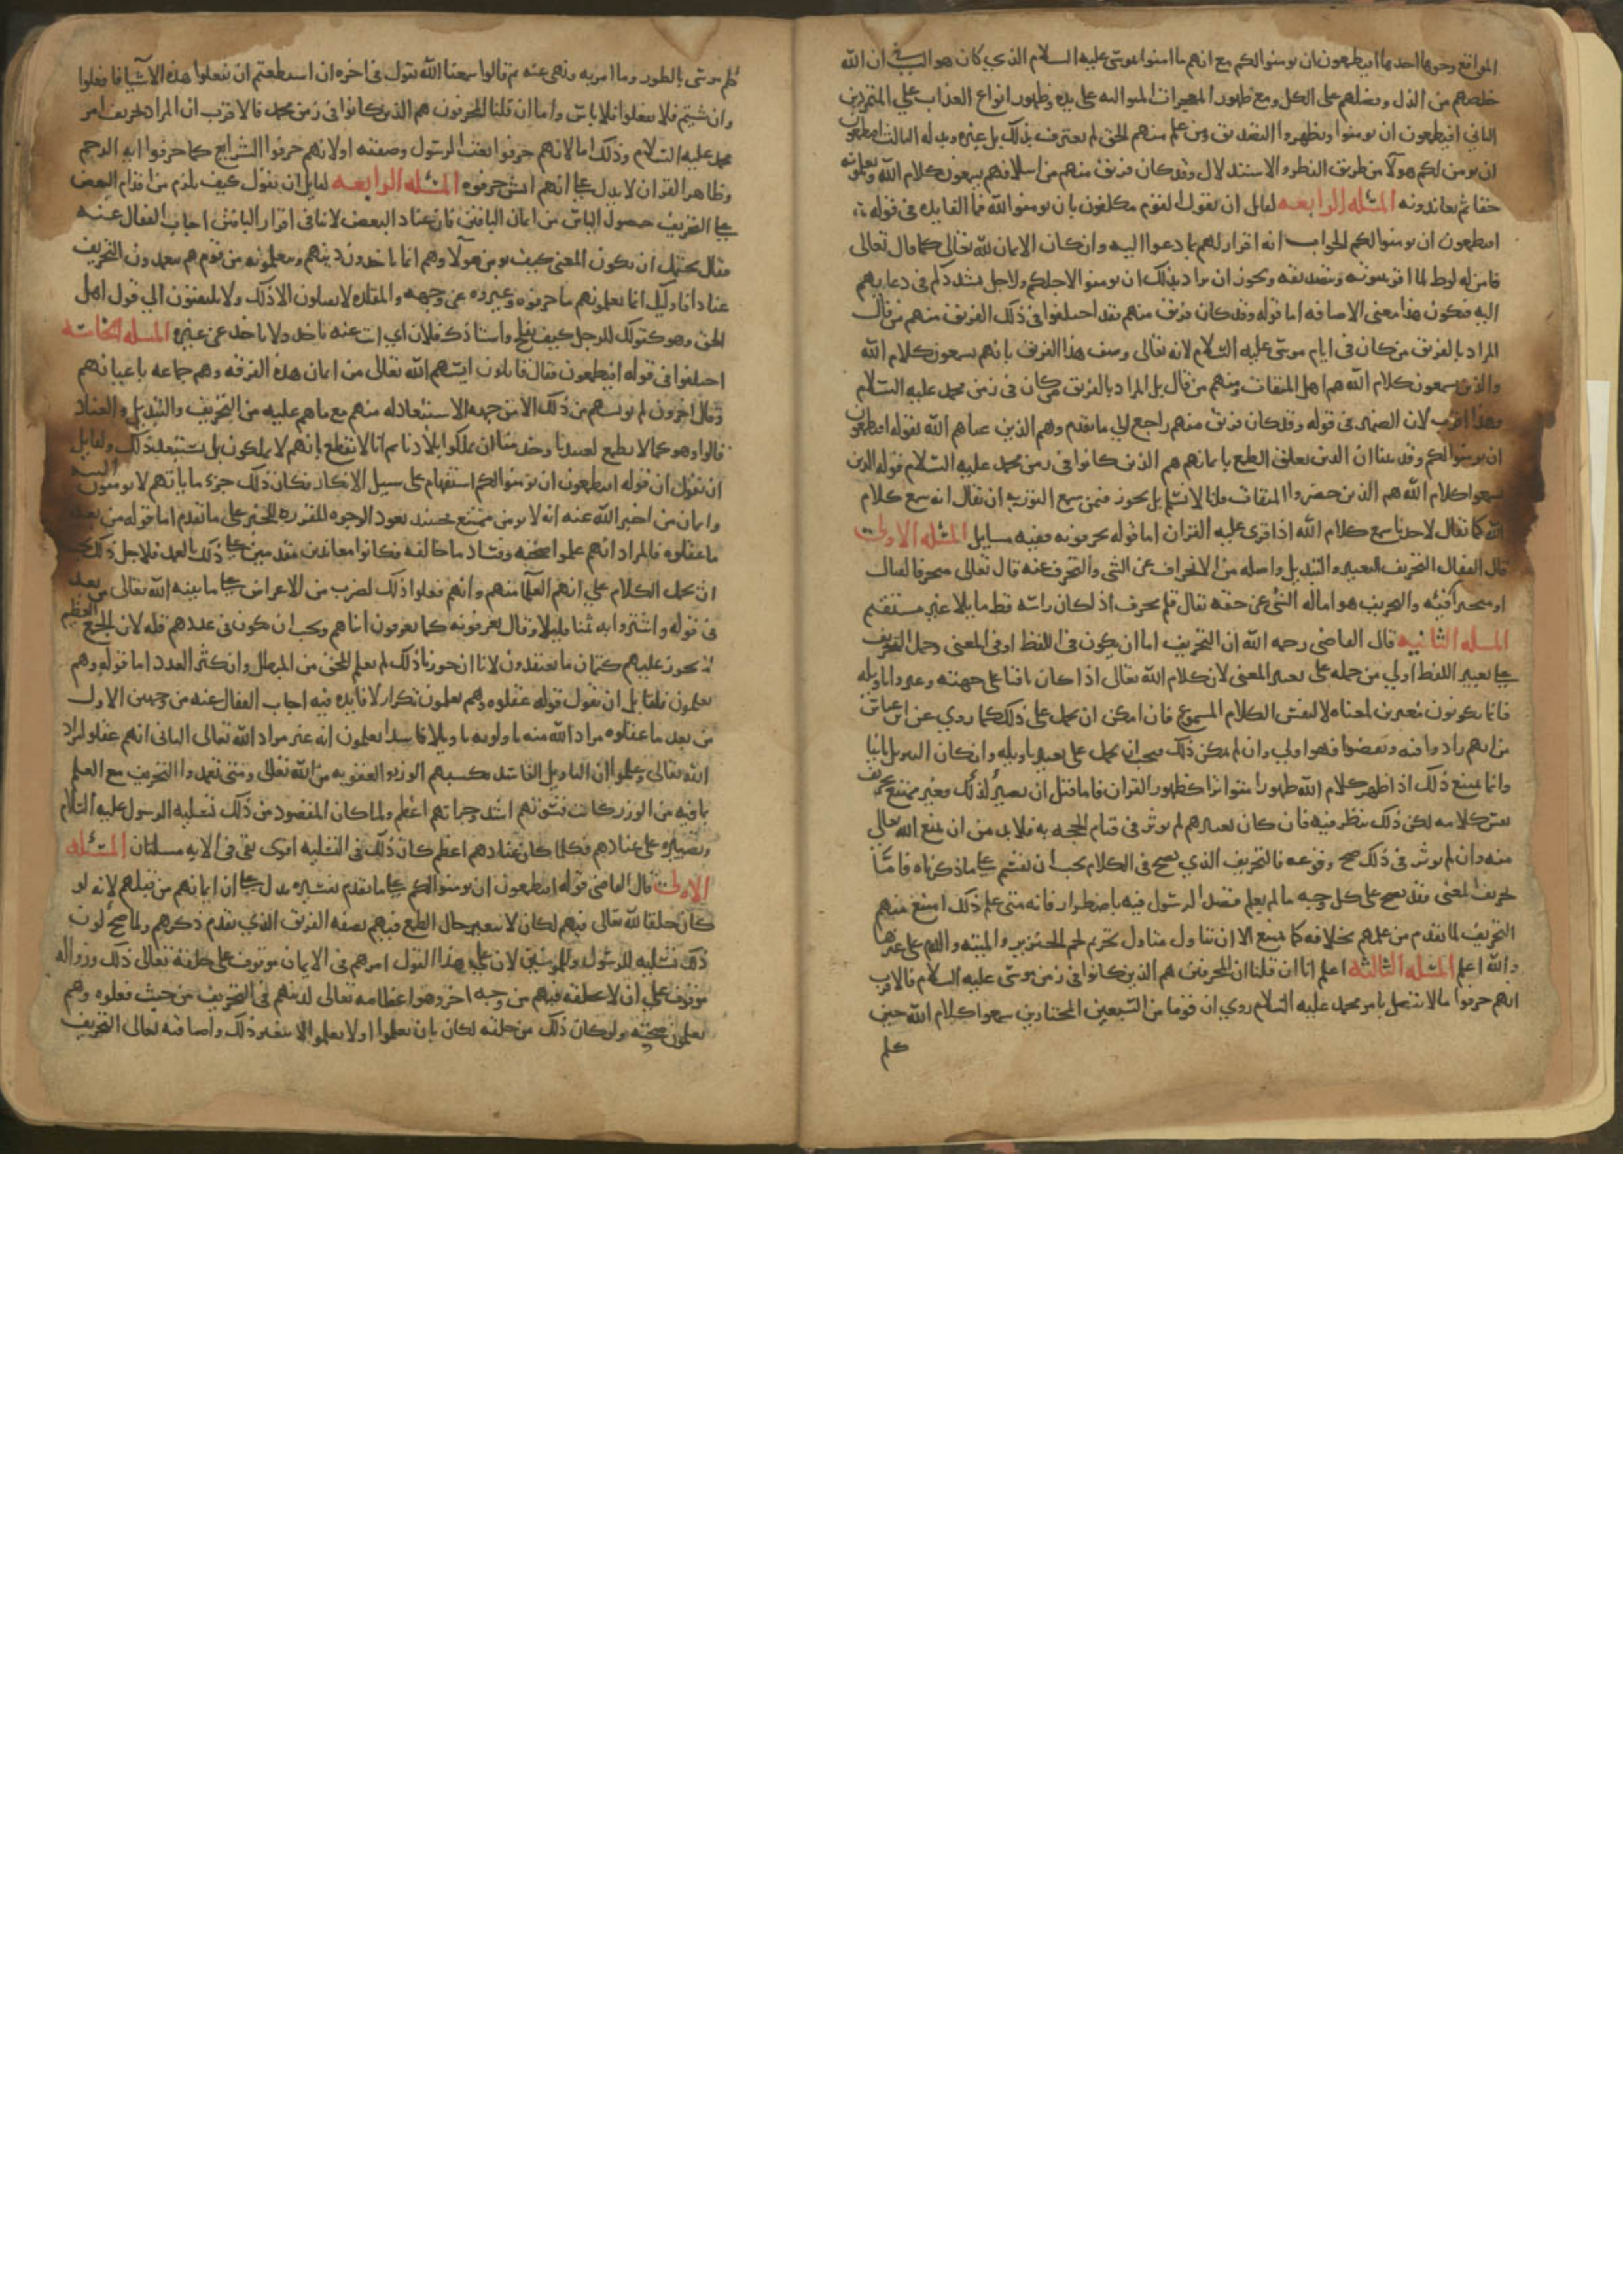 المواقع وجوها احدها افتطمعون ان يومنوا لكم مع انهم ما امنوا بموسى عليه السلام الذي كان هو السبب في ان الله
خلصهم من الذل وفضلهم على الكل ومع ظهور المعجزات المتواليه على يده وظهور انواع العذاب علي المتمردين
الثاني افتطمعون ان يومنوا ويظهروا التصديق ومن علم منهم الحق لم يعترف بذلك بل غيره وبدله الثالث افتطمعون
ان يومن لكم هولا من طريق النظر والاستدلال وقد كان فريق منهم من اسلافهم يسمعون كلام الله ويعلمونه
حقا ثم يعاندونه المسله الرابعه لقايل ان يقول القوم مكلفون بان يومنوا بالله فما الفايده في قوله
افتطمعون ان يومنوا لكم الجواب انه اقرار لهم بما دعوا اليه وان كان الايمان لله تعالى كما قال تعالى
فامن له لوط لما اقر بنبوته وتصديقه ويجوز ان يراد بذلك ان يومنوا لاجلكم ولاجل تشددكم في دعايهم
اليه فيكون هذا معنى الاضافه اما قوله وقد كان فريق منهم فقد اختلفوا في ذلك الفريق منهم من قال
المراد بالفريق من كان في ايام موسى عليه السلام لانه تعالى وصف هذا الفريق بانهم يسمعون كلام الله
والذين يسمعون كلام الله هم اهل الميقات ومنهم من قال بل المراد بالفريق من كان في زمن محمد عليه السلام
وهذا اقرب لان الضمير في قوله وقد كان فريق منهم راجع الى ما تقدم وهم الذين عناهم الله بقوله افتطمعون
ان يومنوا لكم وقد بينا ان الذين تعلق الطمع بايمانهم هم الذين كانوا في زمن محمد عليه السلام قوله الذين
سمعوا كلام الله هم الذين حضروا الميقات قلنا لا نسلم بل يجوز فيمن سمع التوريه ان يقال انه سمع كلام
الله كما يقال لاحدنا سمع كلام الله اذا قري عليه القران اما قوله يحرفونه ففيه مسايل المسله الاولى
قال القفال التحريف التغيير والتبديل واصله من الانحراف عن الشي والتحرف عنه قال تعالى متحرفا لقتال
او متحيزا الى فئه والتحريف هو اماله الشي عن حقه يقال قلم محرف اذا كان راسه قط مايلا غير مستقيم
المسله الثانيه قال القاضي رحمه الله ان التحريف اما ان يكون في اللفظ او في المعنى وحمل التحريف
على تغيير اللفظ اولي من حمله على تغيير المعنى لان كلام الله تعالى اذا كان باقيا على جهته وغيروا تاويله
فانما يكونون مغيرين لمعناه لا لنفس الكلام المسموع فان امكن ان يحمل على ذلك كما روي عن ابن عباس
من انهم زادوا فيه ونقصوا فهو اولي وان لم يمكن ذلك فيجب ان يحمل على تغيير تاويله وان كان التنزيل ثابتا
وانما يمتنع ذلك اذا ظهر كلام الله ظهورا متواترا كظهور القران فاما قبل ان يصير كذلك فغير ممتنع تحريف
نفس كلامه لكن ذلك ينظر فيه فان كان تغييرهم لم يوثر في قيام الحجه به فلابد من ان يمنع الله تعالى
منه وان لم يوثر في ذلك صح وقوعه فالتحريف الذي يصح في الكلام يجب ان يقسم على ما ذكرناه فاما
تحريف المعنى فقد يصح على كل وجه ما لم يعلم قصد الرسول فيه باضطرار فانه متى علم ذلك امتنع منهم
التحريف لما تقدم من علمهم بخلافه كما يمتنع الان ان يتاول متاول تحريم لحم الخنزير والميته والدم على غيرها
والله اعلم المسله الثالثه اعلم انا ان قلنا ان المحرفين هم الذين كانوا في زمن موسى عليه السلام فالاقرب
انهم حرفوا ما لا يتصل بامر محمد عليه السلام روي ان قوما من السبعين المختارين سمعوا كلام الله حين
كلم
كلم موسى بالطور وما امر به ونهى عنه ثم قالوا سمعنا الله يقول في اخره ان استطعتم ان تفعلوا هذه الاشيا فافعلوا
وان شيتم فلا تفعلوا فلا باس واما ان قلنا المحرفون هم الذين كانوا في زمن محمد فالاقرب ان المراد تحريف امر
محمد عليه السلام وذلك اما لانهم حرفوا نعت الرسول وصفته او لانهم حرفوا الشرايع كما حرفوا ايه الرجم
وظاهر القران لا يدل على انهم اي شي حرفوه المسله الرابعه لقايل ان يقول كيف يلزم من اقدام البعض
على التحريف حصول الياس من ايمان الباقين فان عناد البعض لا ينافي اقرار الباقين اجاب القفال عنه
فقال يحتمل ان يكون المعنى كيف يومن هولا وهم انما ياخذون دينهم ويتعلمونه من قوم هم يتعمدون التحريف
عنادا فاوليك انما يعلمونهم ما حرفوه وغيروه عن وجهه والمقلده لا يقبلون الا ذلك ولا يلتفتون الي قول اهل
الحق وهو كقولك للرجل كيف تفلح واستاذك فلان اي انت عنه تاخذ ولا تاخذ عن غيره المسله الخامسه
اختلفوا في قوله افتطمعون فقال قايلون ايسهم الله تعالى من ايمان هذه الفرقه وهم جماعه باعيانهم
وقال اخرون لم يويسهم من ذلك الا من جهه الاستبعاد له منهم مع ما هم عليه من التحريف والتبديل والعناد
قالوا وهو كما لا نطمع لعبيدنا وخدمنا ان يملكوا بلادنا ثم انا لا نقطع بانهم لا يملكون بل نستبعد ذلك ولقايل
ان يقول ان قوله افتطمعون ان يومنوا لكم استفهام على سبيل الانكار فكان ذلك جزما بانهم لا يومنون البته
وايمان من اخبر الله عنه انه لا يومن ممتنع فحينيذ تعود الوجوه المقرره للخبر على ما تقدم اما قوله من بعد
ما عقلوه فالمراد انهم علموا صحته وفساد ما خالفه فكانوا معاندين مقدمين على ذلك بالعمد فلاجل ذلك يجب
ان يحمل الكلام علي انهم العلما منهم وانهم فعلوا ذلك لضرب من الاعراض على ما بينه الله تعالى من بعد
في قوله واشتروا به ثمنا قليلا وقال يعرفونه كما يعرفون ابناهم ويجب ان يكون في عددهم قله لان الجمع العظيم
لا يجوز عليهم كتمان ما يعتقدون لانا ان جوزنا ذلك لم يعلم المحق من المبطل وان كثر العدد اما قوله وهم
يعلمون فلقايل ان يقول قوله عقلوه وهم يعلمون تكرار لا فايده فيه اجاب القفال عنه من وجهين الاول
من بعد ما عقلوه مراد الله منه فاولوه تاويلا فاسدا يعلمون انه غير مراد الله تعالى الثاني انهم عقلوا مراد
الله تعالى وعلموا ان التاويل الفاسد يكسبهم الوزر والعقوبه من الله تعالى ومتى تعمدوا التحريف مع العلم
بما فيه من الوزر كانت قسوتهم اشد وجراتهم اعظم ولما كان المقصود من ذلك تسليه الرسول عليه السلام
وتصبيره على عنادهم فكلما كان عنادهم اعظم كان ذلك في التسليه اقوى بقي في الايه مسلتان المسله
الاولى قال القاضي قوله افتطمعون ان يومنوا لكم على ما تقدم تفسيره يدل على ان ايمانهم من قبلهم لانه لو
كان خلقا لله تعالى فيهم لكان لا يتغير حال الطمع فيهم بصفه الفريق الذي تقدم ذكرهم ولما صح كون
ذلك تسليه للرسول وللمومنين لان على هذا القول امرهم في الايمان موقوف على خلقه تعالى ذلك وزواله
موقوف على ان لا يخلقه فيهم من وجه اخر وهو اعظامه تعالى لذنبهم في التحريف من حيث فعلوه وهم
يعلمون صحته ولو كان ذلك من خلقه لكان بان يعلموا او لا يعلموا لا يتغير ذلك واضافته تعالى التحريف